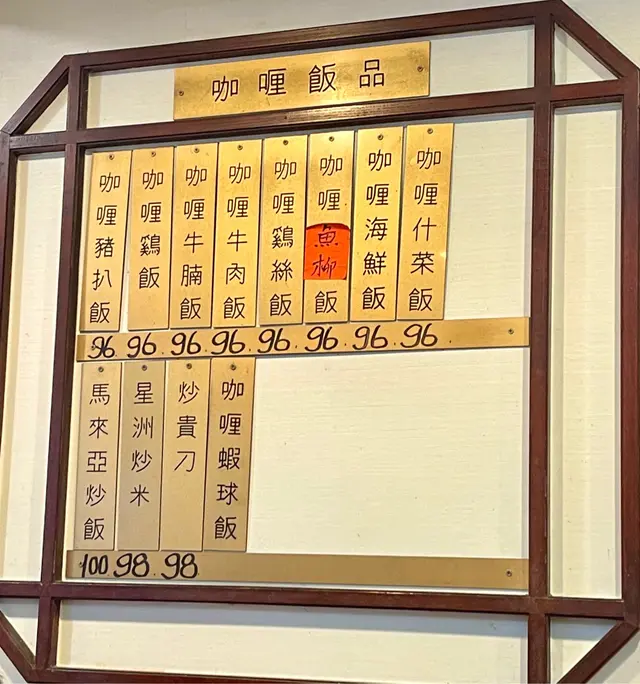 咖喱飯品
咖喱豬扒飯
咖喱鷄飯
咖喱牛腩飯
咖喱牛肉飯
咖喱鷄絲飯
咖喱魚柳飯
咖喱海鮮飯
咖喱什菜飯
96 96 96 96 96 96 96 96
馬來亞炒飯
星洲炒米
炒貴刀
咖喱蝦球飯
100 98 98